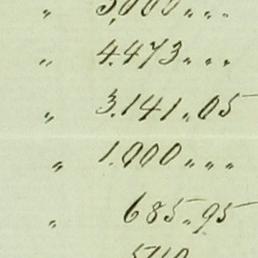 „ 5,000 „ „ .
„ 4.473 „ . .
„ 3.141 „ 05
„ 1.000 „ „ „
„ 685 „ 95